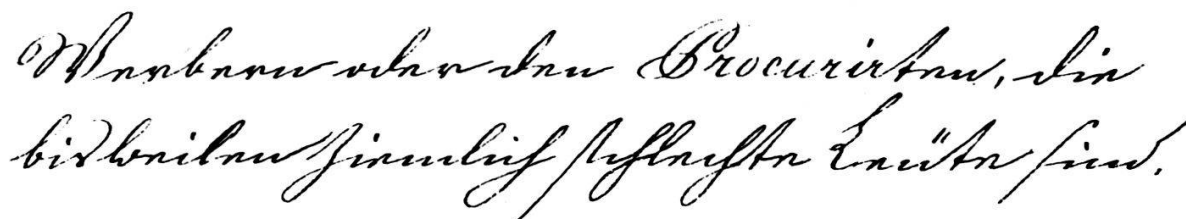 Werbern oder den Procurirten, die
bisweilen ziemlich schlechte Leüte sind.